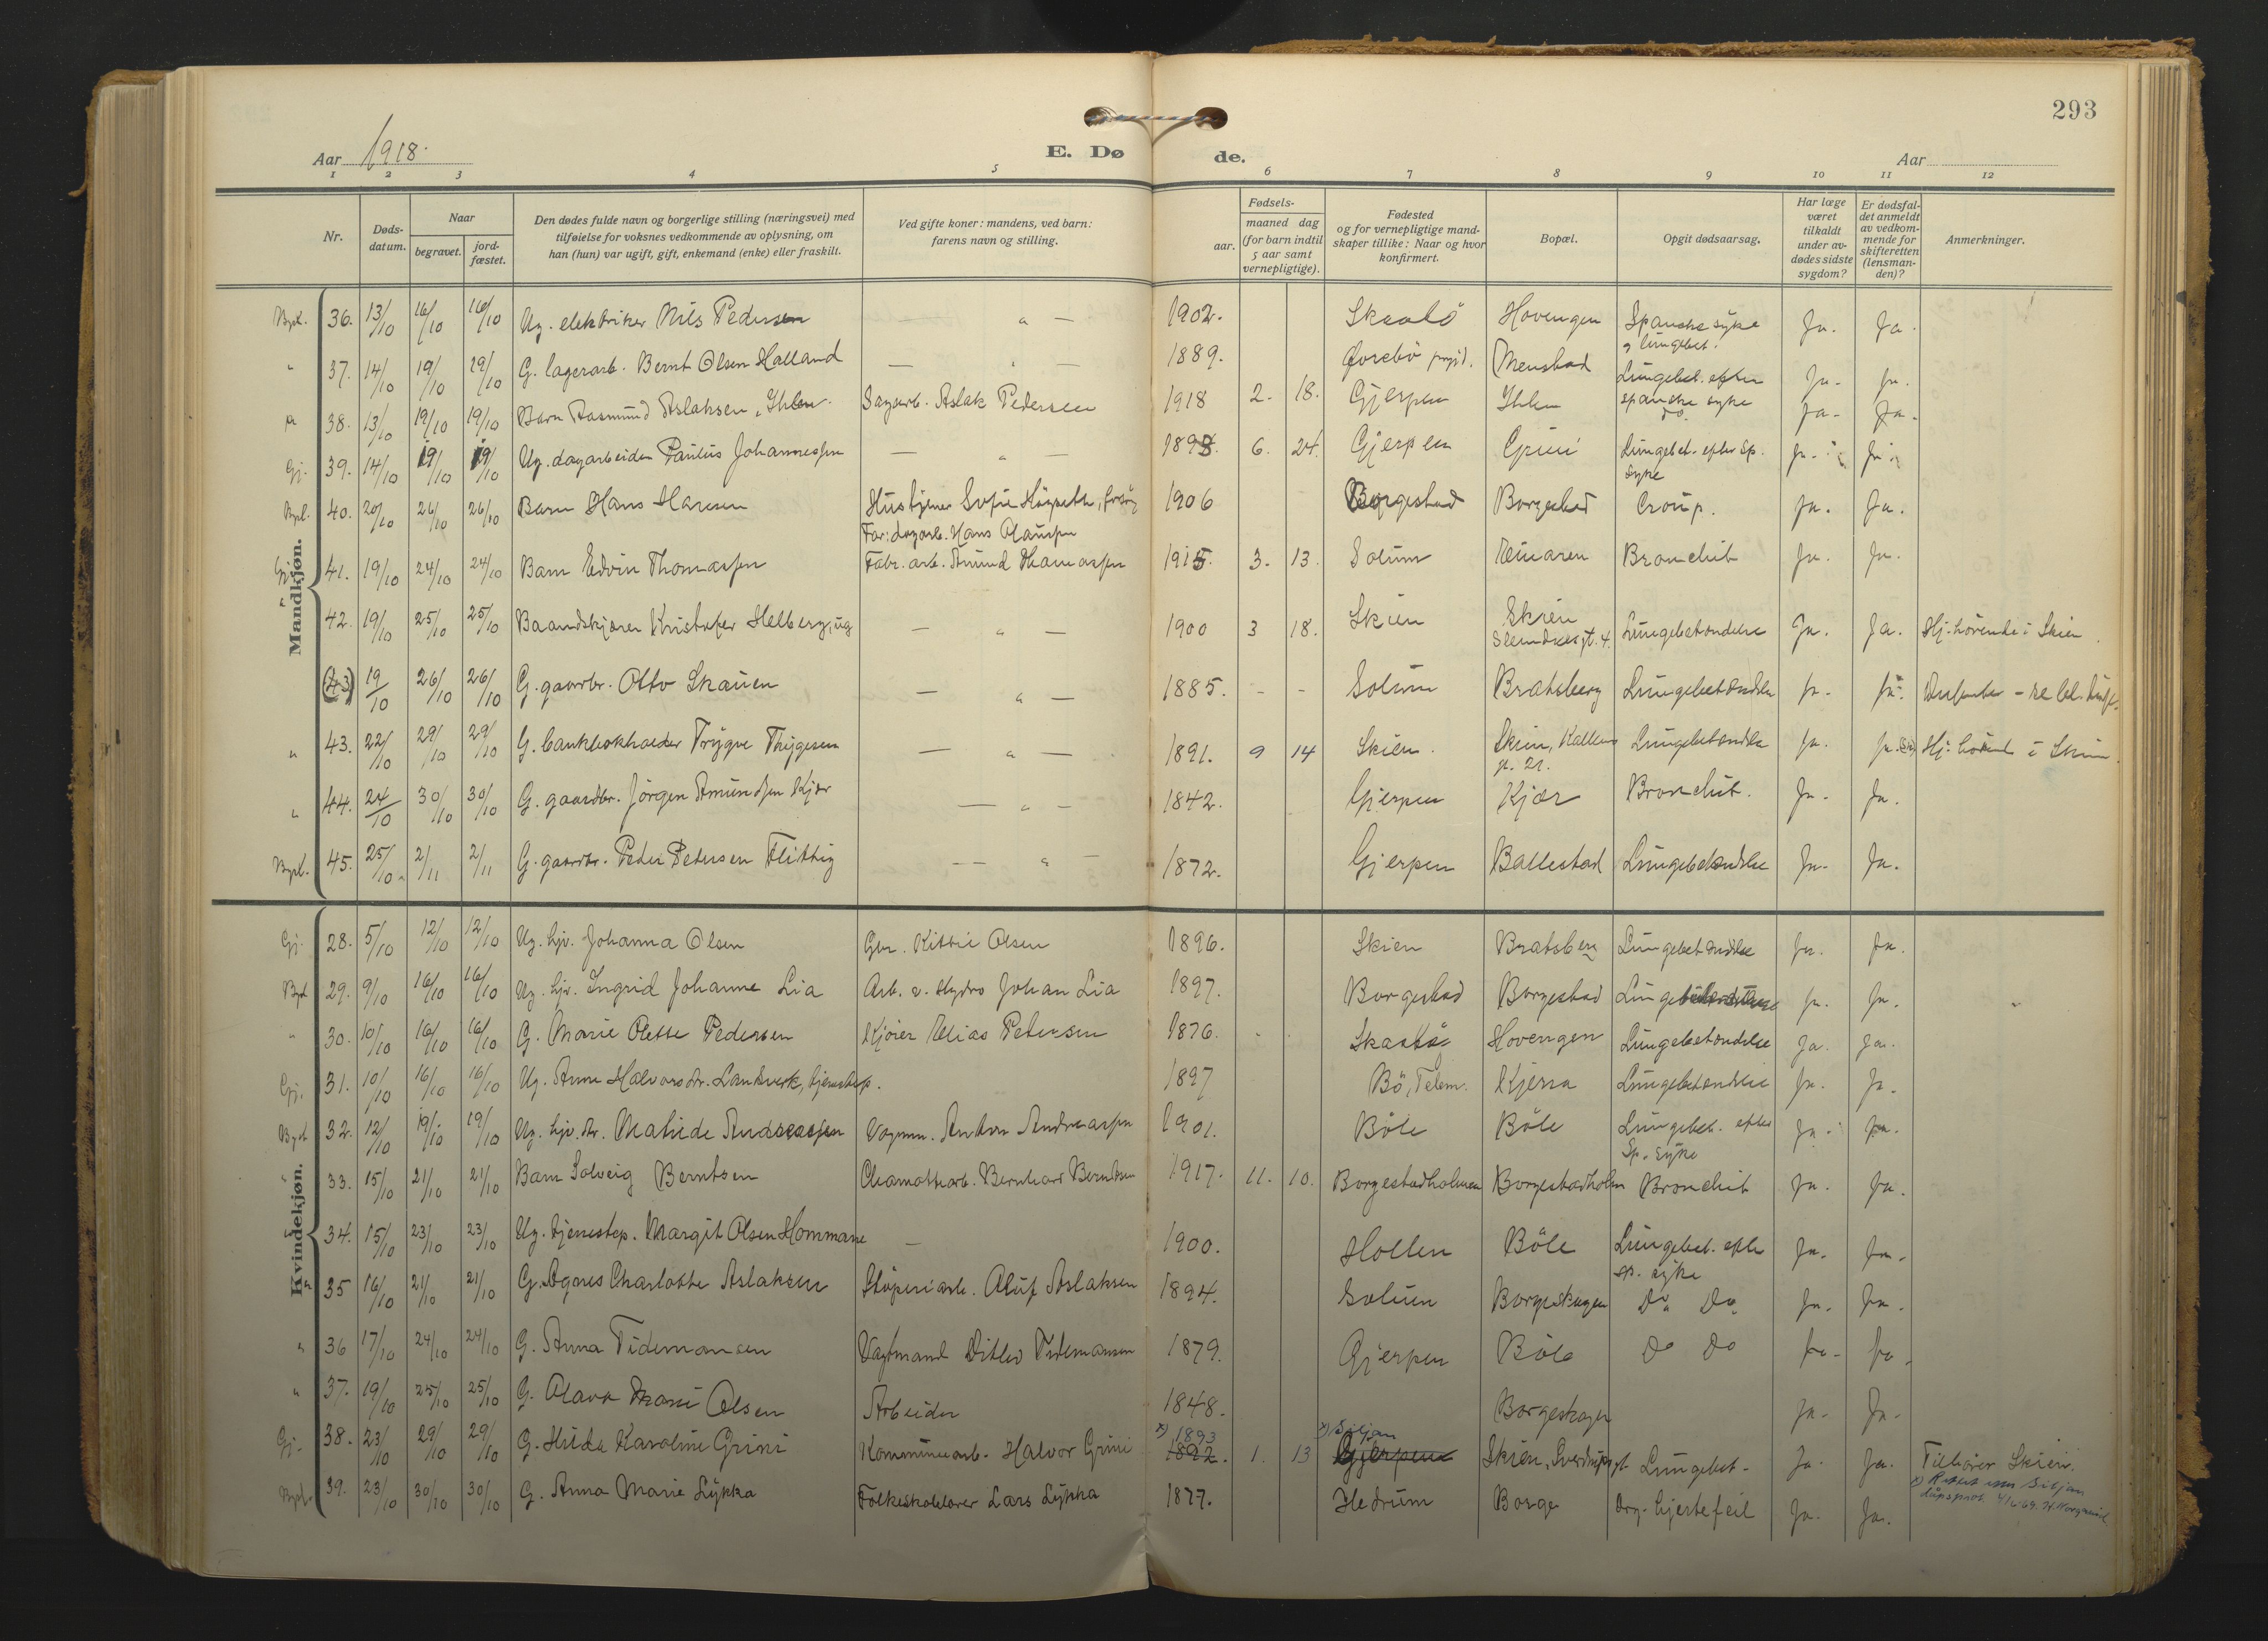 293
Aar 1918.
E. Dø de.
Aar
1 2 3 4 5 6 7 8 9 10 11 12
Nr. Døds-datum. Naar begravet. jord-fæstet. Den dødes fulde navn og borgerlige stilling (næringsvei) med tilføielse for voksnes vedkommende av oplysning, om han (hun) var ugift, gift, enkemand (enke) eller fraskilt. Ved gifte koner: mandens, ved barn: farens navn og stilling. Fødsels- aar. maaned dag (for barn indtil 5 aar samt vernepligtige). Fødested og for vernepligtige mand-skaper tillike: Naar og hvor konfirmert. Bopæl. Opgit dødsaarsag. Har læge været tilkaldt under av-dødes sidste sygdom? Er dødsfal-det anmeldt av vedkom-mende for skifteretten (lensman-den)? Anmerkninger.
Mandkjøn.
36. 13/10 16/10 16/10 Ug. elektriker Nils Pedersen — " — 1902. Hovengen Spanske syke og lungebet. Ja. Ja.
" 37. 14/10 19/10 19/10 G. lagerarb. Bernt Olsen Halland — " — 1889. Menstad Lungebet. efter spanske syke Ja. Ja.
38. 13/10 19/10 19/10 Barn Aasmund Aslaksen, Ihlen. Sagarb. Aslak Pedersen 1918 2. 18. Gjerpen Ihlen do. Ja. Ja.
Gj. 39. 14/10 19/10 19/10 Ug. dagarbeider Paulus Johannessen — " — 6. 24. Gjerpen Grini Lungebet. efter sp. syke Ja. Ja.
40. 20/10 26/10 26/10 Barn Hans Hansen 1906 Borgestad Borgestad Croup. Ja. Ja.
Far: dagarb. Hans Olaussen
Gj. 41. 19/10 24/10 24/10 Barn Edvin Thomassen Fabr. arb. Amund Thomassen 1915. 3. 13. Solum Bronchit Ja. Ja.
" 42. 19/10 25/10 25/10 Baandskjærer Kristofer Helberg, ug — " — 1900 3 18. Skien Skien Lungebetændelse Ja. Ja. Hj. hørende i Skien.
(43) 19/10 26/10 26/10 G. gaardbr. Otto Skauen — " — 1885. - - Solum Bratsberg Lungebetændelse Ja. Ja.
" 43. 22/10 29/10 29/10 G. bankbokholder Trygve Thygesen — " — 1891. 9 14 Skien. Skien, Lungebetændelse Ja. Ja. Hj. hørende i Skien.
" 44. 24/10 30/10 30/10 G. gaardbr. Jørgen Amundsen Kjær — " — 1842. Gjerpen Kjær Bronchit. Ja. Ja.
45. 25/10 2/11 2/11 G. gaardbr. Peder Petersen Flittig — " — 1872. Gjerpen Ballestad Lungebetændelse Ja. Ja.
Kvindekjøn.
Gj. 28. 5/10 12/10 12/10 Ug. hjv. Johanna Olsen Gbr. Kittil Olsen 1896. Skien Bratsberg Lungebetændelse Ja. Ja.
29. 9/10 16/10 16/10 Ug. hjv. Ingrid Johanne Lia Arb. v. Hydro Johan Lia 1897. Borgestad Borgestad Lungebetændelse Ja. Ja.
" 30. 10/10 16/10 16/10 G. Marie Olette Pedersen Kjører Elias Petersen 1876. Hovengen Lungebetændelse Ja. Ja.
Gj. 31. 10/10 16/10 16/10 Ug. Anne Halvorsdr. Landsverk, tjenestep. 1897 Bö, Telem. Kjerra Lungebetændelse Ja. Ja.
32. 12/10 19/10 19/10 Ug. hjv. dtr. Matilde Andreassen Vogmm. Anton Andreassen 1901. Böle Böle Lungebet. efter Sp. syke Ja. Ja.
" 33. 15/10 21/10 21/10 Barn Solveig Berntsen Chamottearb. Bernhard Berntsen 1917. 11. 10. Borgestadholmen Borgestadholm Bronchit Ja. Ja.
" 34. 15/10 23/10 23/10 Ug. tjenestep. Margit Olsen Hommane — 1900. Hollen Böle Lungebet. efter sp. syke Ja. Ja.
" 35 16/10 21/10 21/10 G. Agnes Charlotte Aslaksen Støperiarb. Oluf Aslaksen 1894. Solum Borgeskogen Do Do Ja. Ja.
" 36 17/10 24/10 24/10 G. Anna Tidemansen Vagtmand Ditlev Tidemansen 1879. Gjerpen Böle Do Do Ja. Ja.
" 37. 19/10 25/10 25/10 G. Olava Marie Olsen Arbeider 1848. Borgeskogen Ja. Ja.
Gj. 38. 23/10 29/10 29/10 G. Hilda Karoline Grini Kommunearb. Halvor Grini x) 1893 1892. 1. 13 x) Siljan Gjerpen Skien, Lungebet. Ja. Ja. Tilhører Skien.
39. 23/10 30/10 30/10 G. Anna Marie Lykka Folkeskolelærer Lars Lykka 1877. Hedrum Borge Org. hjertefeil Ja. Ja.